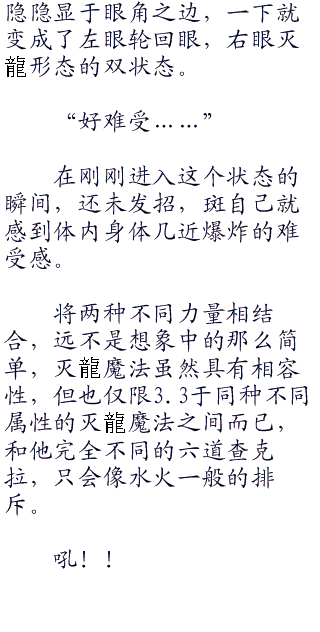 隐隐显于眼角之边，一下就
变成了左眼轮回眼，右眼灭
龍形态的双状态。
“好难受……”
在刚刚进入这个状态的
瞬间，还未发招，斑自己就
感到体内身体几近爆炸的难
受感。
将两种不同力量相结
合，远不是想象中的那么简
单，灭龍魔法虽然具有相容
性，但也仅限3.3于同种不同
属性的灭龍魔法之间而已，
和他完全不同的六道查克
拉，只会像水火一般的排
斥。
吼！！